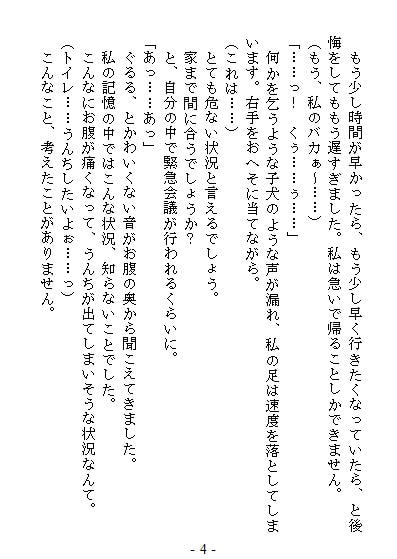 もう少し時間が早かったら、もう少し早く行きたくなっていたら、と後
悔をしてももう遅すぎました。私は急いで帰ることしかできません。
(もう、私のバカぁ～……)
「……っ！　くぅ……ぅ……」
何かを乞うような子犬のような声が漏れ、私の足は速度を落としてしま
います。右手をおへそに当てながら。
(これは……)
とても危ない状況と言えるでしょう。
家まで間に合うでしょうか？
と、自分の中で緊急会議が行われるくらいに。
「あっ……あっ」
ぐるる、とかわいくない音がお腹の奥から聞こえてきました。
私の記憶の中ではこんな状況、知らないことでした。
こんなにお腹が痛くなって、うんちが出てしまいそうな状況なんて。
(トイレ……うんちしたいよぉ……っ)
こんなこと、考えたことがありません。
- 4 -